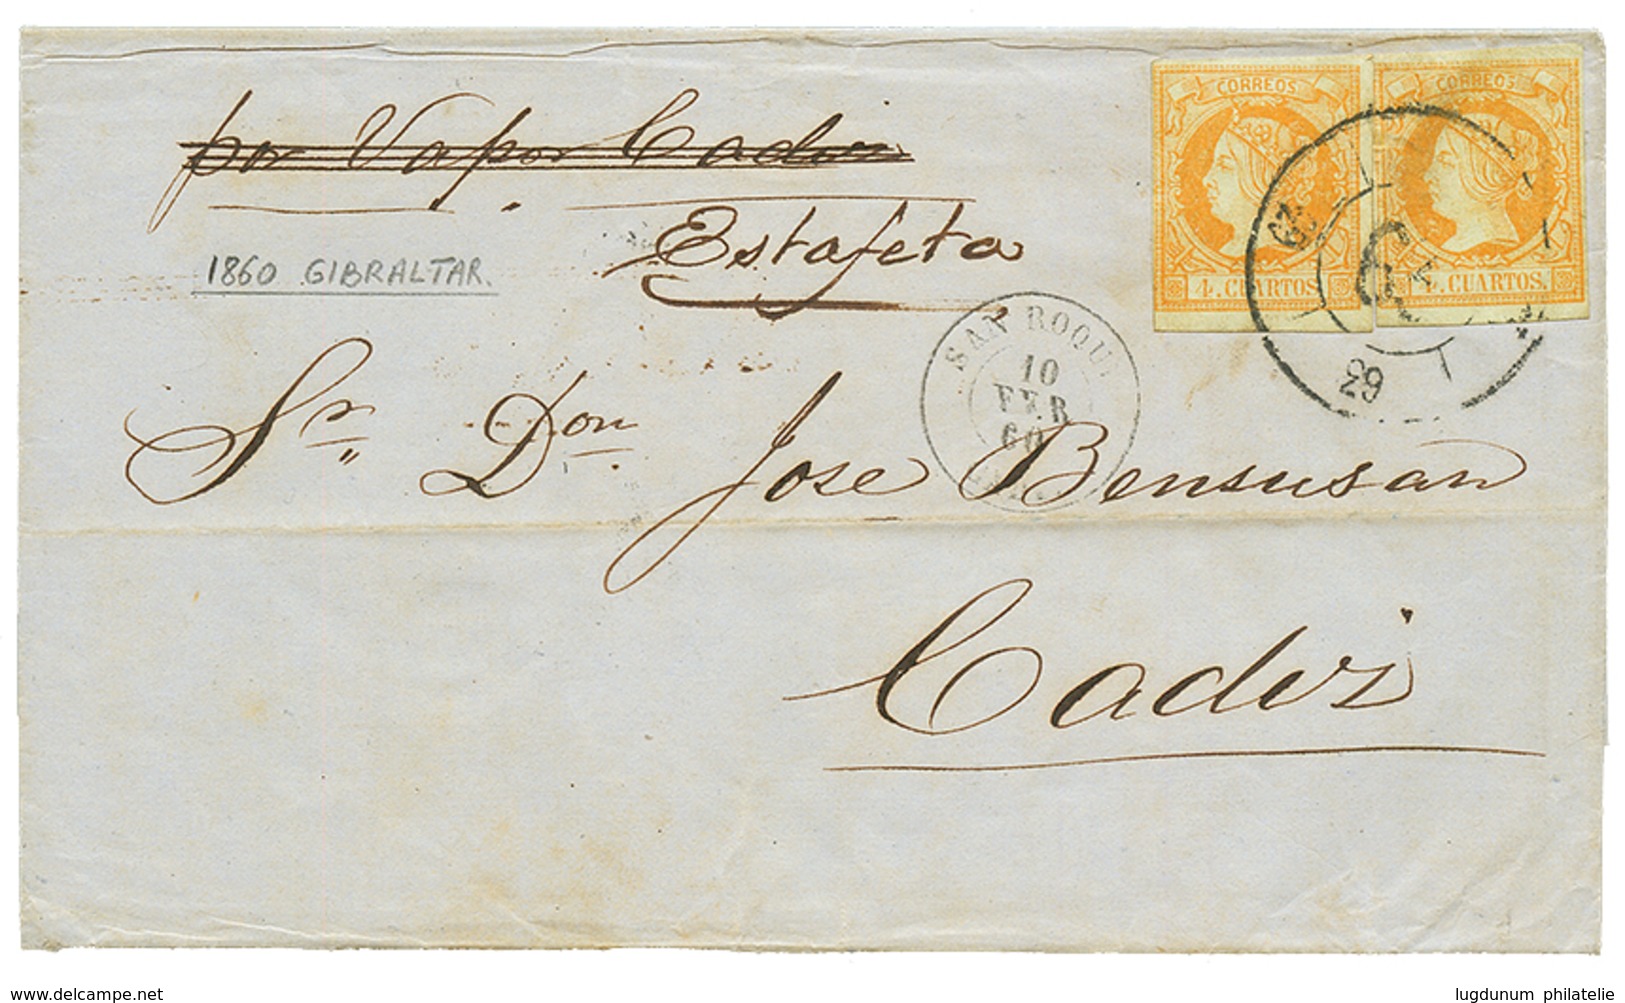 CORREOS CORREOS
por Vapor Cadiz
Estafeta
1860 GIBRALTAR.
4. CUARTOS. 4. CUARTOS.
63
29
SAN ROQUE
10
FEB
60
Sr. Don Jose Bensusan
Cadiz
delcampe.net
lugdunum philatelie